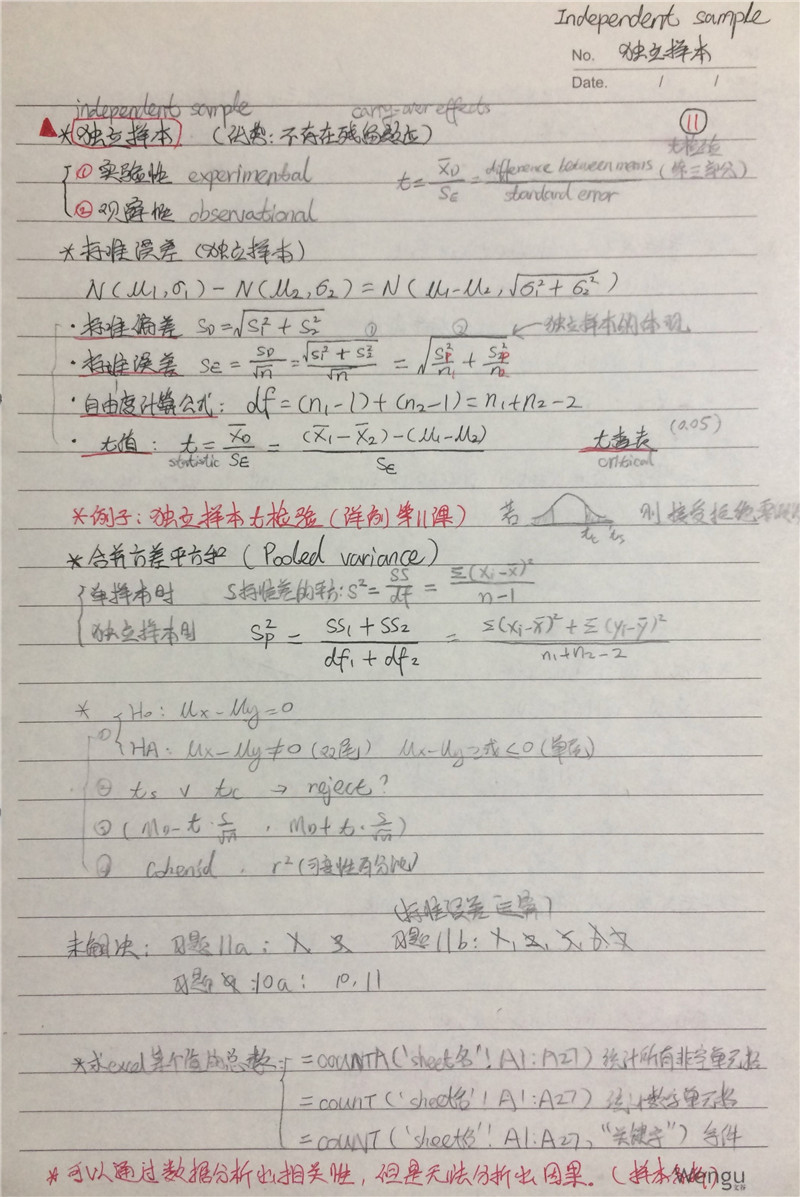 Independent sample
No. 独立样本
Date. / /
independent sample carry-over effects
* 独立样本 (优势: 不存在残留效应) ⑪
① 实验性 experimental t = X̄D/SE = difference between means/standard error t检验 (第三部分)
② 观察性 observational
* 标准误差 (独立样本)
N(μ1, σ1) - N(μ2, σ2) = N(μ1-μ2, √(σ1²+σ2²))
· 标准偏差 SD = √(S1²+S2²) ① ② ← 独立样本的体现
· 标准误差 SE = SD/√n = √(S1²+S2²)/√n = √(Sp²/n1 + Sp²/n2)
· 自由度计算公式: df = (n1-1) + (n2-1) = n1+n2-2
· t值: t statistic = X̄D/SE = ((X̄1-X̄2)-(μ1-μ2))/SE t查表 (0.05) critical
* 例子: 独立样本t检验 (详例第11课) 若 tc ts 则接受拒绝
* 合并方差平方和 (Pooled variance)
单样本时 S标准差的平方: S² = SS/df = Σ(Xi-x̄)²/(n-1)
独立样本时 Sp² = (SS1+SS2)/(df1+df2) = (Σ(Xi-x̄)²+Σ(yi-ȳ)²)/(n1+n2-2)
* ① H0: μx-μy=0
HA: μx-μy≠0 (双尾) μx-μy>或<0 (单尾)
② ts v tc → reject?
③ (MD-t·S/√n , MD+t·S/√n)
④ cohensd . r² (可变性百分比)
(标准误差运算)
未解决: 习题11a: 习题11b:
习题 10a: 10, 11
* 求excel某个值的总数: =COUNTA('sheet名'!A1:A27) 统计所有非空单元格
=COUNT('sheet名'!A1:A27) 统计数字单元格
=COUNT('sheet名'!A1:A27, "关键字") 条件
* 可以通过数据分析出相关性, 但是无法分析出因果。(样本
Wengu